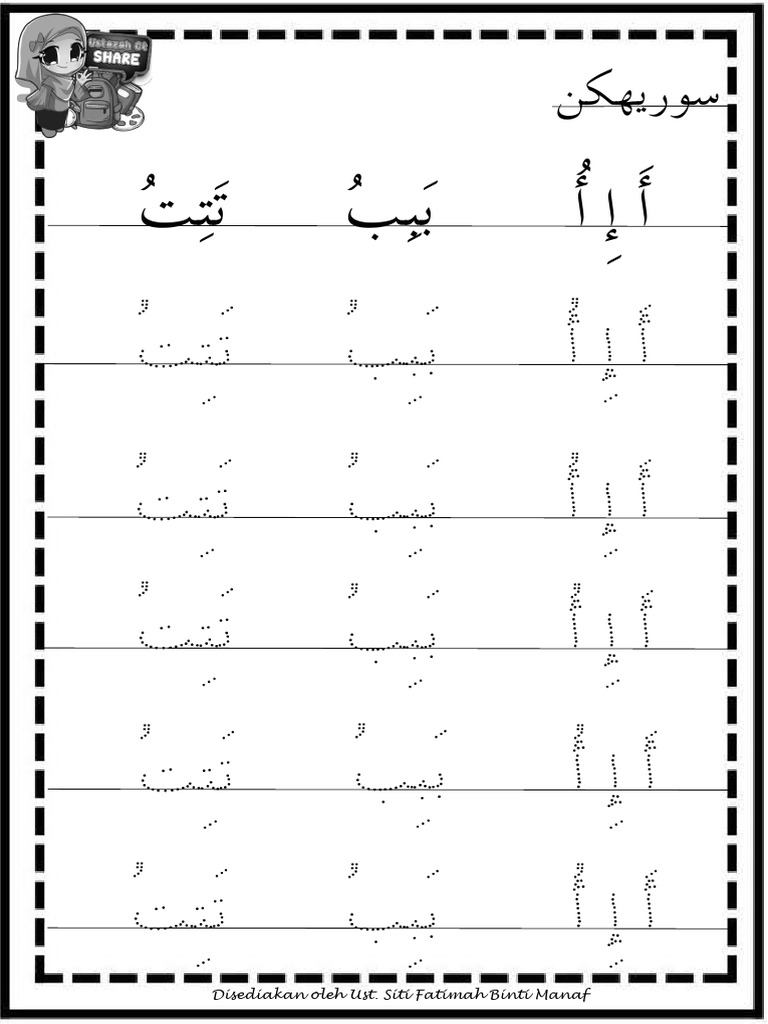 Ustazah Ct
SHARE
سوريهكن
أَ إِ أُ بَبِبُ تَتِتُ
أَ إِ أُ بَبِبُ تَتِتُ
أَ إِ أُ بَبِبُ تَتِتُ
أَ إِ أُ بَبِبُ تَتِتُ
أَ إِ أُ بَبِبُ تَتِتُ
أَ إِ أُ بَبِبُ تَتِتُ
Disediakan oleh Ust. Siti Fatimah Binti Manaf